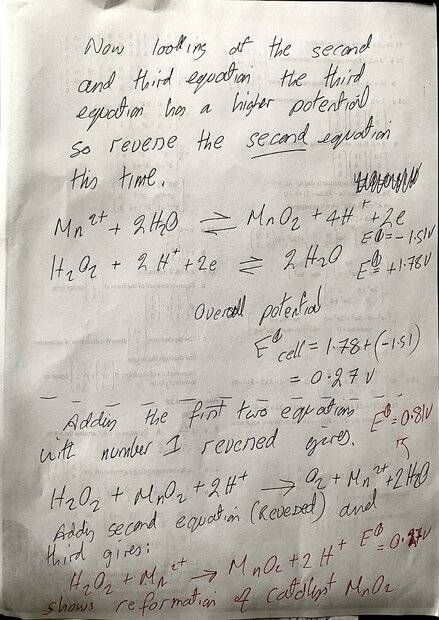 Now looking at the second
and third equation the third
equation has a higher potential
so reverse the second equation
this time.
Mn²⁺ + 2H₂O ⇌ MnO₂ + 4H⁺ + 2e
E⦵ = -1.51V
H₂O₂ + 2H⁺ + 2e ⇌ 2H₂O E⦵ = +1.78V
Overall potential
E⦵ cell = 1.78 + (-1.51)
= 0.27V
Adding the first two equations E⦵ = 0.81V
with number 1 reversed gives.
H₂O₂ + MnO₂ + 2H⁺ → O₂ + Mn²⁺ + 2H₂O
Adding second equation (reversed) and
third gives:
H₂O₂ + Mn²⁺ → MnO₂ + 2H⁺ E⦵ = 0.27V
shows reformation of catalyst MnO₂